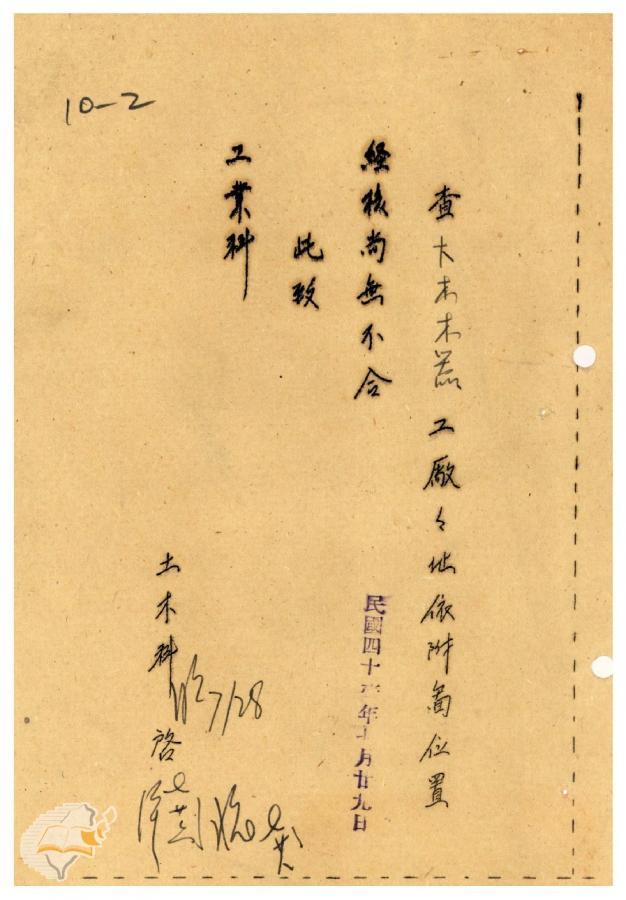 10-2
查大木木器工廠々址依附圖位置
經核尚無不合
此致
工業科
土木科 啓
7/28
民國四十 年 月廿九日